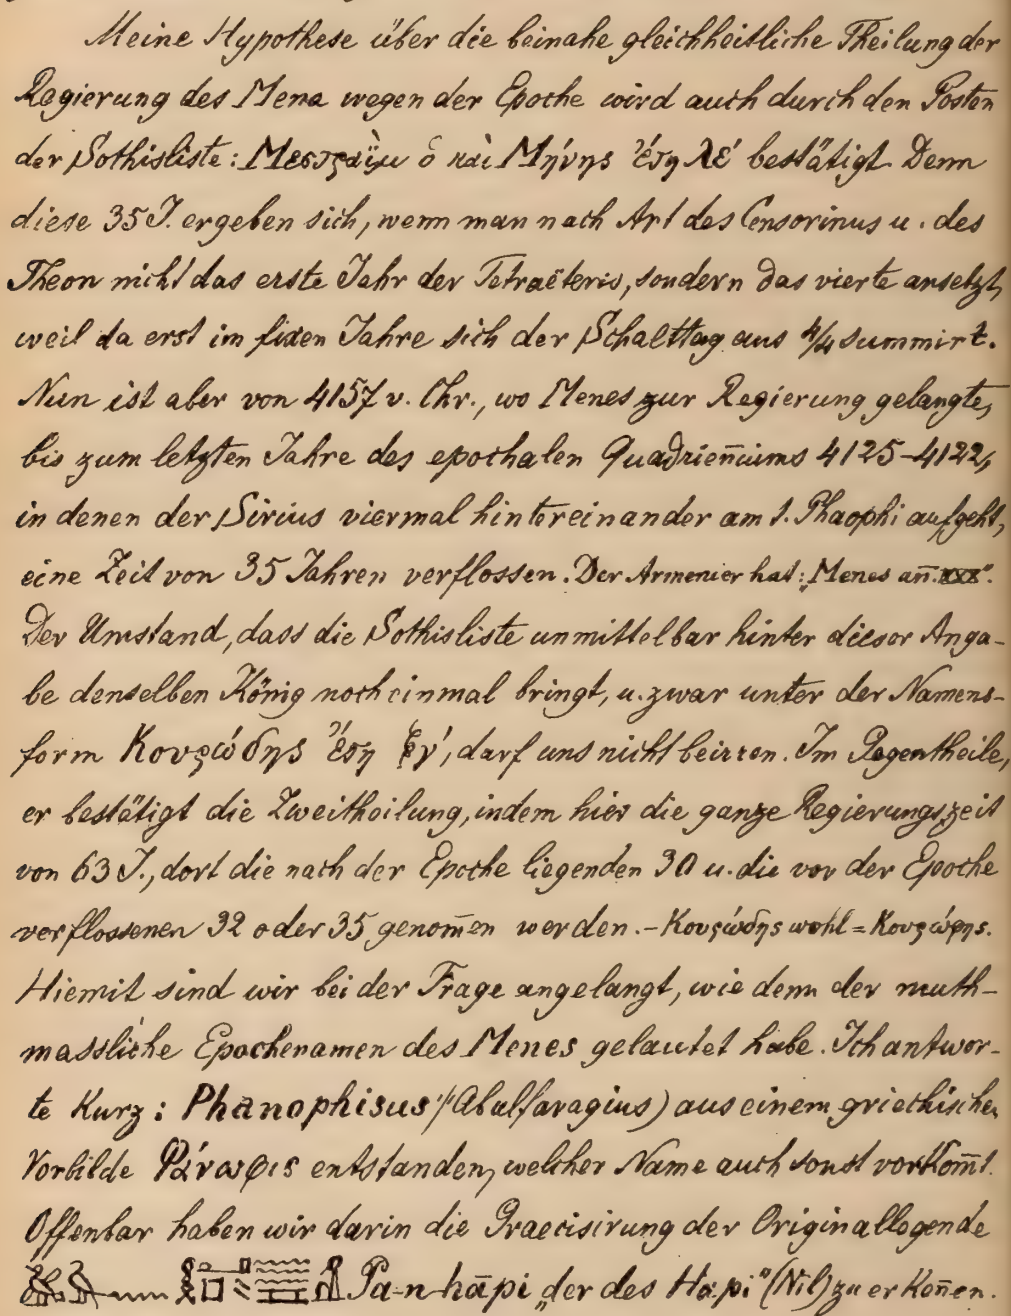 Meine Hypothese über die beinahe gleichheitliche Theilung der
Regierung des Mena wegen der Epoche wird auch durch den Posten
der Sothisliste: Μεστραὶμ ὁ καὶ Μήνης ἔτη λε' bestätigt. Denn
diese 35 J. ergeben sich, wenn man nach Art des Censorinus u. des
Theon nicht das erste Jahr der Tetraëteris, sondern das vierte ansetzt,
weil da erst im fixen Jahre sich der Schalttag aus 4/4 summirt.
Nun ist aber von 4157 v. Chr., wo Menes zur Regierung gelangte,
bis zum letzten Jahre des epochalen Quadrien̄iums 4125–4122,
in denen der Sirius viermal hintereinander am 1. Phaophi aufgeht,
eine Zeit von 35 Jahren verflossen. Der Armenier hat: „Menes an̄. xxx".
Der Umstand, dass die Sothisliste unmittelbar hinter dieser Anga-
be denselben König noch einmal bringt, u. zwar unter der Namens-
form Κουρώδης ἔτη ξγ', darf uns nicht beirren. Im Gegentheile,
er bestätigt die Zweitheilung, indem hier die ganze Regierungszeit
von 63 J., dort die nach der Epoche liegenden 30 u. die vor der Epoche
verflossenen 32 oder 35 genom̄en werden. – Κουρώδης wohl = Κουρώρης.
Hiemit sind wir bei der Frage angelangt, wie denn der muth-
massliche Epochenamen des Menes gelautet habe. Ich antwor-
te kurz: Phanophisus (Abulfaragius) aus einem griechischen
Vorbilde Φάνωφις entstanden, welcher Name auch sonst vorkom̄t.
Offenbar haben wir darin die Praecisirung der Originallegende
Pa-n-hāpi „der des Hapi" (Nil) zu erken̄en.